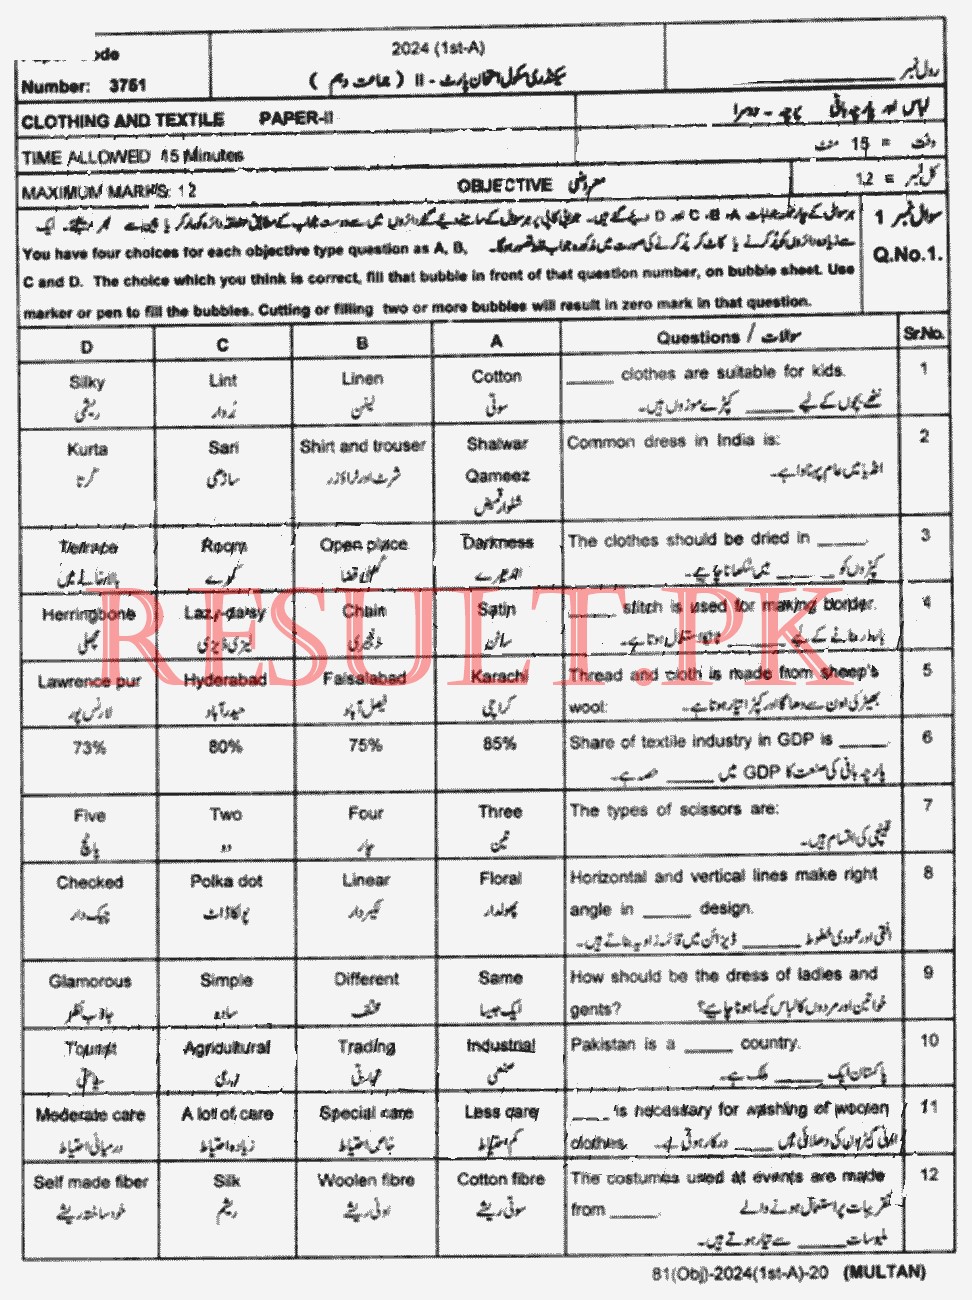 ode
Number: 3751
2024 (1st-A)
سیکنڈری سکول امتحان پارٹ - II ( جماعت دہم )
رول نمبر
CLOTHING AND TEXTILE PAPER-II
TIME ALLOWED 15 Minutes
وقت = 15 منٹ
MAXIMUM MARKS: 12
OBJECTIVE معروضی
کل نمبر = 12
سوال نمبر 1
Q.No.1.
You have four choices for each objective type question as A, B,
C and D. The choice which you think is correct, fill that bubble in front of that question number, on bubble sheet. Use
marker or pen to fill the bubbles. Cutting or filling two or more bubbles will result in zero mark in that question.
D C B A Questions / سوالات Sr.No.
Silky Lint Linen Cotton _____ clothes are suitable for kids. 1
ریشمی رُودار لینن سوتی ننھے بچوں کے لیے _____ کپڑے موزوں ہیں۔
Kurta Sari Shirt and trouser Shalwar Qameez Common dress in India is: 2
کُرتا ساڑھی شرٹ اور ٹراؤزر شلوار قمیض انڈیا میں عام پہناوا ہے۔
Terrace Room Open place Darkness The clothes should be dried in _____. 3
کمرے کھلی فضا اندھیرے کپڑوں کو _____ میں سُکھانا چاہیے۔
Herringbone Lazy-daisy Chain Satin _____ stitch is used for making border. 4
مچھلی لیزی ڈیزی زنجیری ساٹن
Lawrence pur Hyderabad Faisalabad Karachi Thread and cloth is made from sheep's wool: 5
لارنس پور حیدرآباد فیصل آباد کراچی بھیڑ کی اون سے دھاگا اور کپڑا تیار ہوتا ہے۔
73% 80% 75% 85% Share of textile industry in GDP is _____. 6
پارچہ بانی کی صنعت کا GDP میں _____ حصہ ہے۔
Five Two Four Three The types of scissors are: 7
پانچ دو چار تین قینچی کی اقسام ہیں۔
Checked Polka dot Linear Floral Horizontal and vertical lines make right angle in _____ design. 8
چیک دار پولکا ڈاٹ لکیر دار پھولدار افقی اور عمودی خطوط _____ ڈیزائن میں قائمہ زاویہ بناتے ہیں۔
Glamorous Simple Different Same How should be the dress of ladies and gents? 9
جاذب نظر سادہ مختلف ایک جیسا خواتین اور مردوں کا لباس کیسا ہونا چاہیے؟
Tourist Agricultural Trading Industrial Pakistan is a _____ country. 10
زرعی تجارتی صنعتی پاکستان ایک _____ ملک ہے۔
Moderate care A lot of care Special care Less care ____ is necessary for washing of woolen clothes. 11
درمیانی احتیاط زیادہ احتیاط خاص احتیاط کم احتیاط اونی کپڑوں کی دھلائی میں ____ درکار ہوتی ہے۔
Self made fiber Silk Woolen fibre Cotton fibre The costumes used at events are made from _____. 12
خود ساختہ ریشے ریشم اونی ریشے سوتی ریشے تقریبات پر استعمال ہونے والے
ملبوسات _____ سے تیار ہوتے ہیں۔
RESULT.PK
81(Obj)-2024(1st-A)-20 (MULTAN)